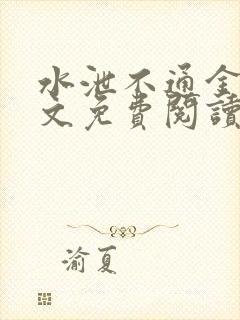 水泄不通全
文免費閱讀
渝夏